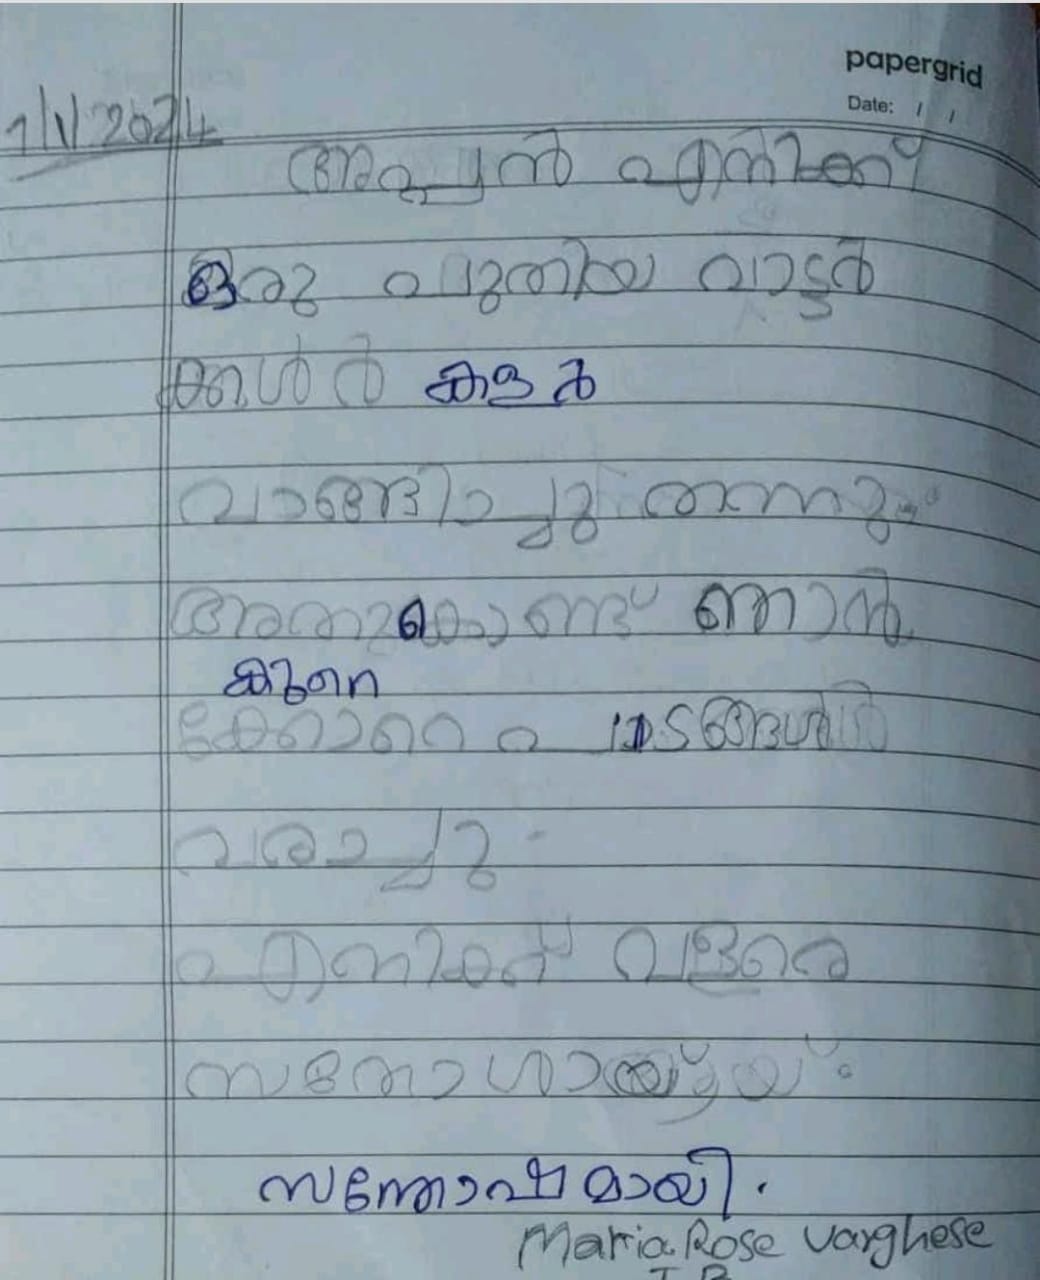 papergrid
Date: / /
1/1/2024
അപ്പൻ എനിക്ക്
ഒരു പുതിയ വാട്ടർ
കളർ
വാങ്ങിച്ചു തന്നു.
അതുകൊണ്ട് ഞാൻ
കുറെ
പടങ്ങൾ
വരച്ചു.
എനിക്ക് വളരെ
സന്തോഷമായി.
Maria Rose Varghese
I B